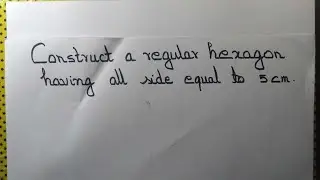 Construct a regular hexagon
having all side equal to 5 cm.